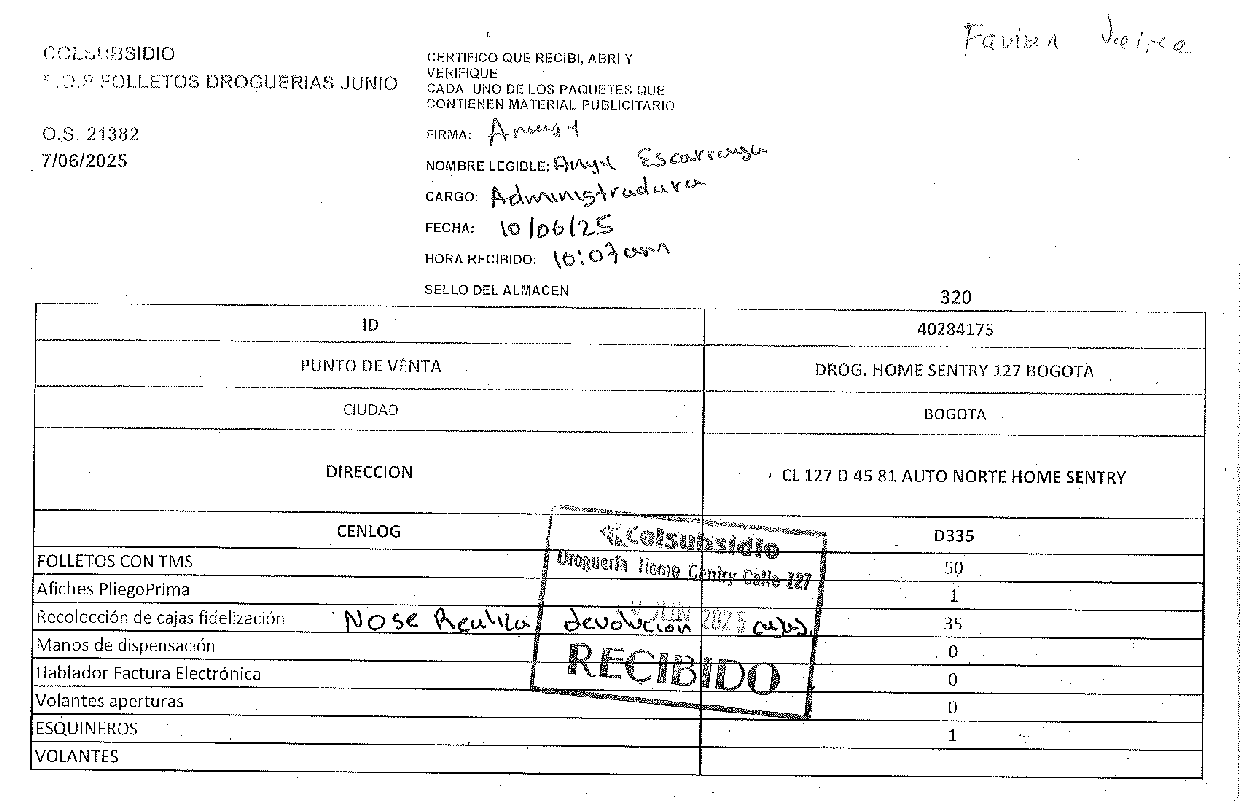 COLSUBSIDIO
FOLLETOS DROGUERIAS JUNIO
O.S. 21382
7/06/2025
CERTIFICO QUE RECIBI, ABRI Y
VERIFIQUE
CADA UNO DE LOS PAQUETES QUE
CONTIENEN MATERIAL PUBLICITARIO
FIRMA:
NOMBRE LEGIBLE:
CARGO: Administradora
FECHA: 10/06/25
HORA RECIBIDO: 10:07am
SELLO DEL ALMACEN
320
ID 40284175
PUNTO DE VENTA DROG. HOME SENTRY 127 BOGOTA
CIUDAD BOGOTA
DIRECCION CL 127 D 45 81 AUTO NORTE HOME SENTRY
CENLOG D335
FOLLETOS CON TMS 50
Afiches PliegoPrima 1
Recolección de cajas fidelización No se Realiza devolucion cajas. 35
Manos de dispensación 0
Hablador Factura Electrónica 0
Volantes aperturas 0
ESQUINEROS 1
VOLANTES
Colsubsidio
Droguería Home Centry Calle 127
JUN 2025
RECIBIDO